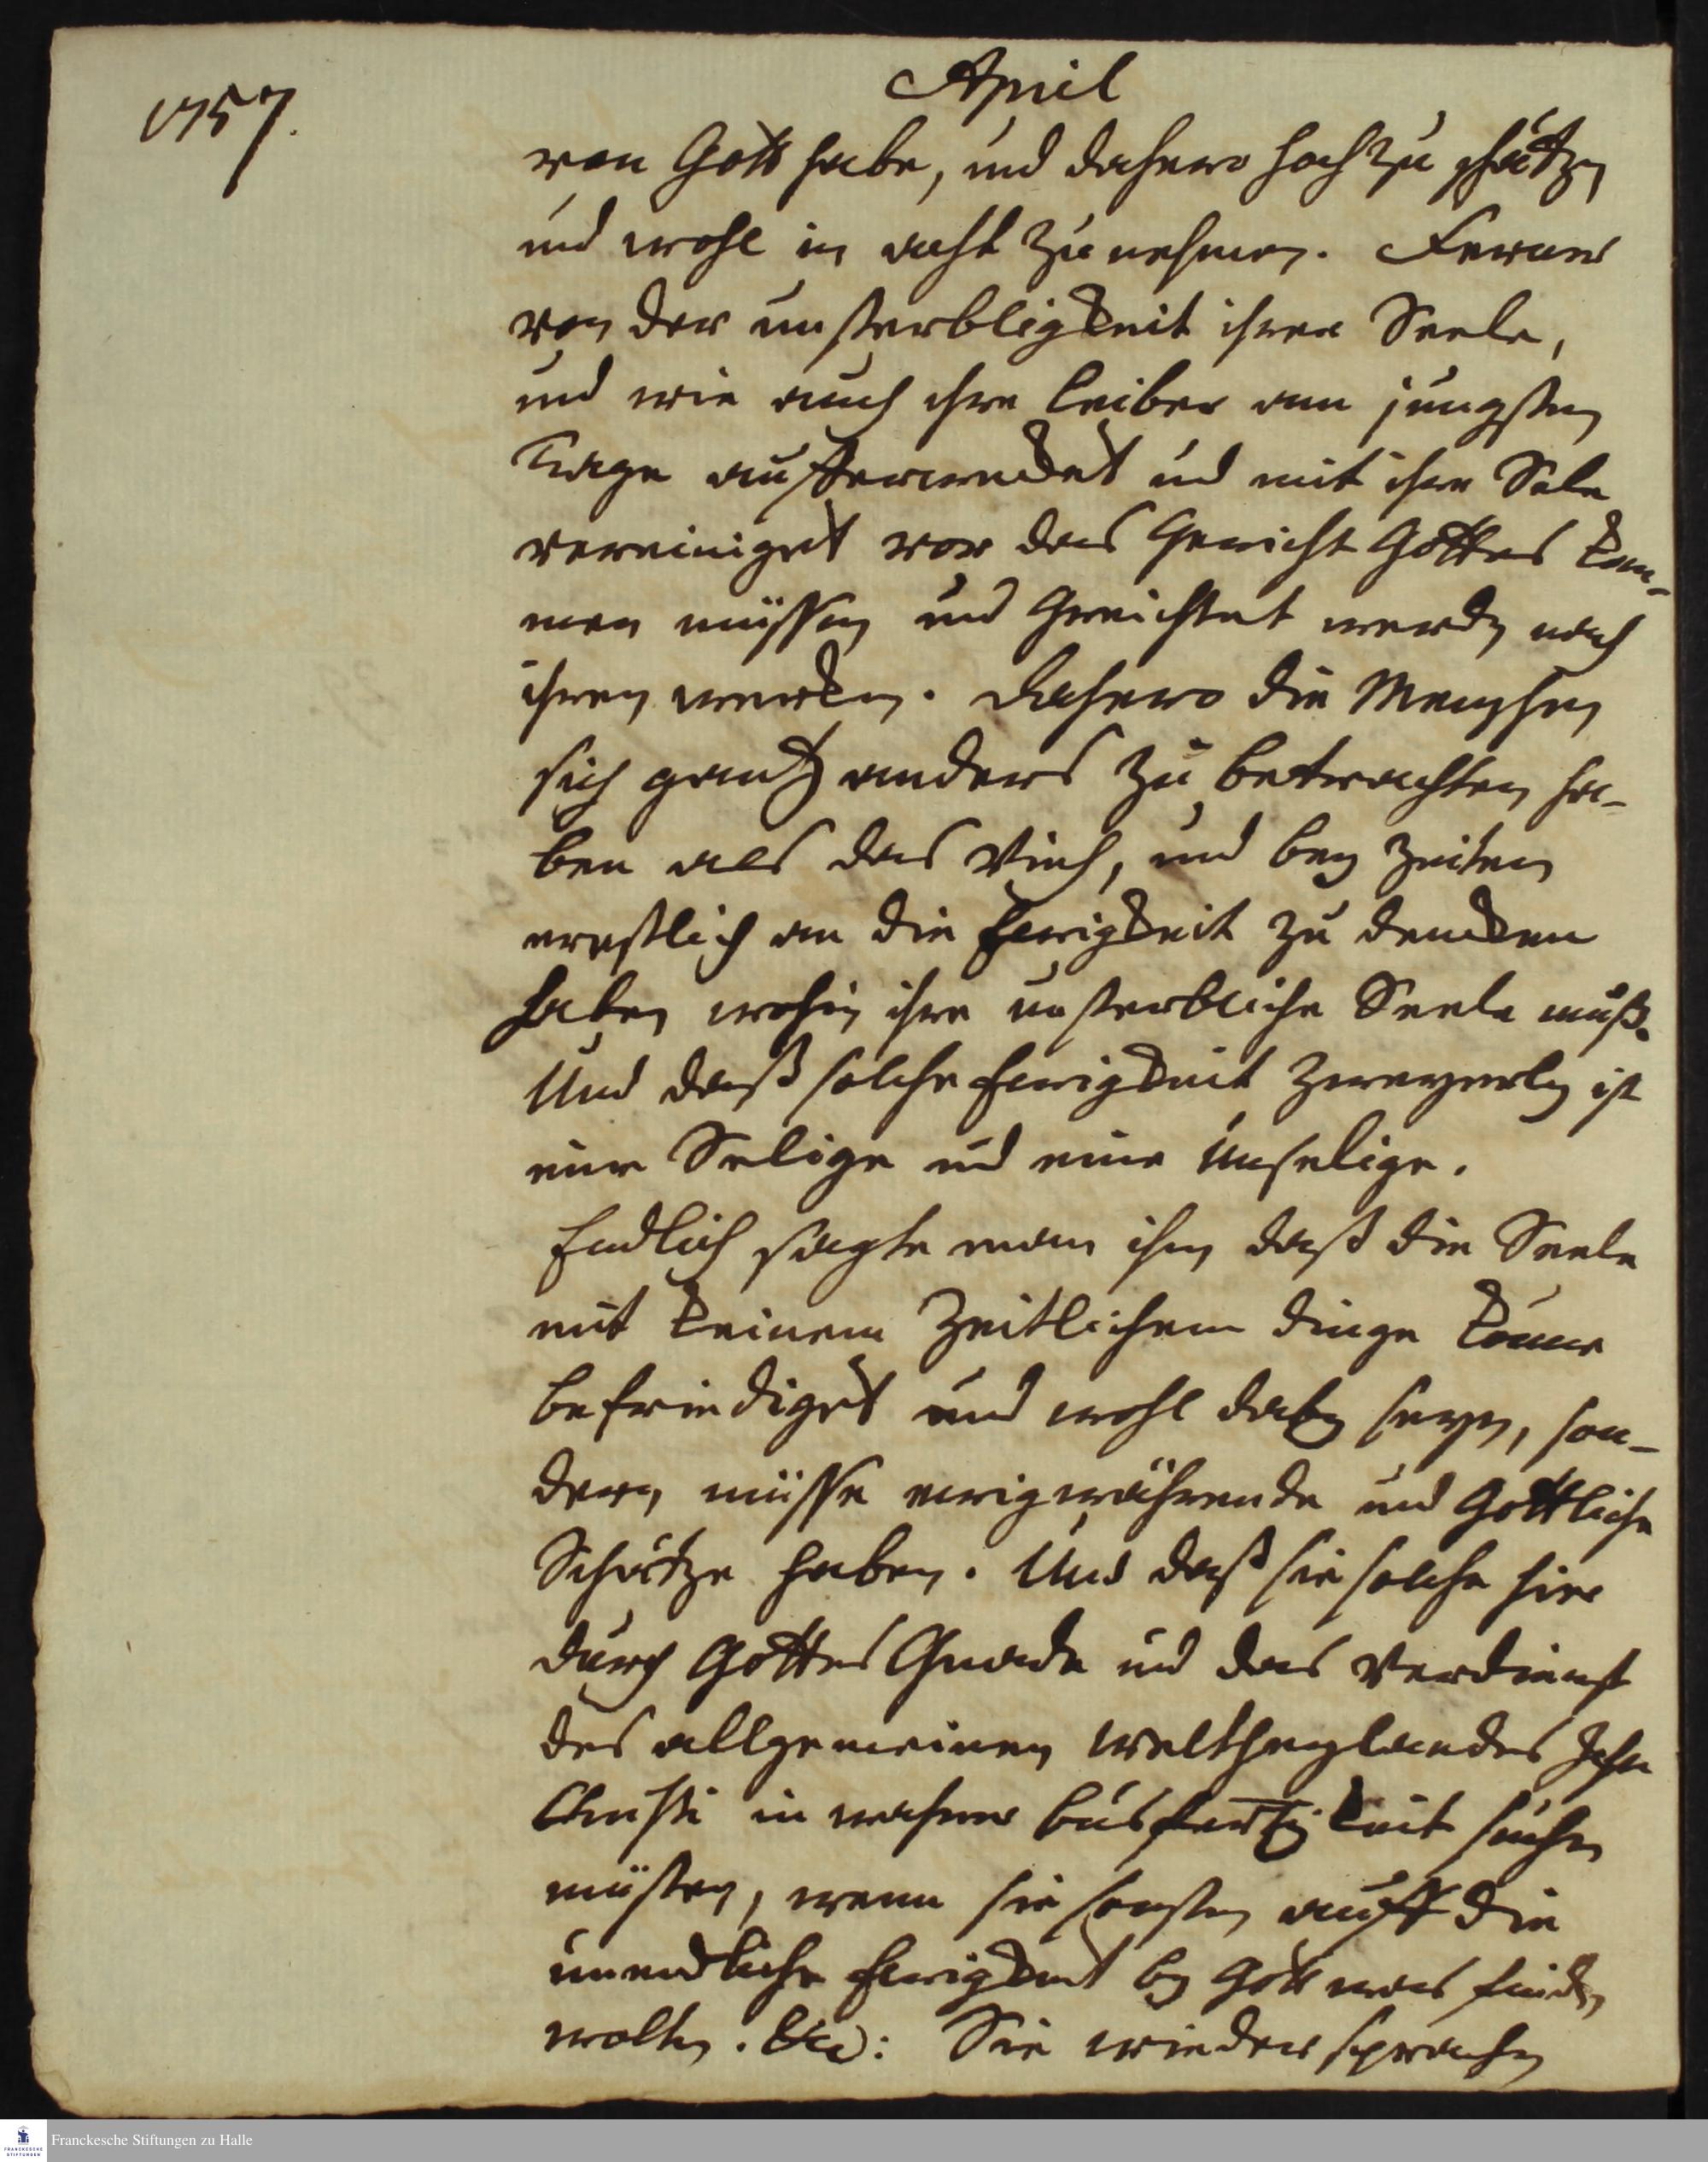 April
1757.
von Gott habe, und dahero hoch zu schätzen
und wohl in acht zu nehmen. Ferner
von der unsterbligkeit ihrer Seele,
und wie auch ihre Leiber am jungsten
Tage aufferwecket und mit ihre Sele
vereiniget vor das Gericht Gottes kom-
men müssen und Gerichtet werden nach
ihren wercken. Dahero die Menschen
sich gantz anders zu betrachten ha-
ben als das Vieh, und bey Zeiten
ernstlich an die Ewigkeit zu dencken
haben wohin ihre unsterbliche Seele muß.
Und daß solche Ewigkeit zweyerley ist
eine Selige und eine Unselige.
Endlich sagte man ihm daß die Seele
mit keinem Zeitlichem dinge könne
befriediget und wohl dabey seyn, son-
dern müsse ewigwährende und Göttliche
Schätze haben. Und daß sie solche hier
durch Gottes Gnade und das Verdienst
des allgemeinen Weltheylandes Jesu
Christi in wahrer busfertigkeit suchen
müsten, wenn sie sonsten auff die
unendliche Ewigkeit bey Gott was finden
wolten. &c: Sie wiedersprachen
Franckesche Stiftungen zu Halle
FRANCKESCHE
STIFTUNGEN